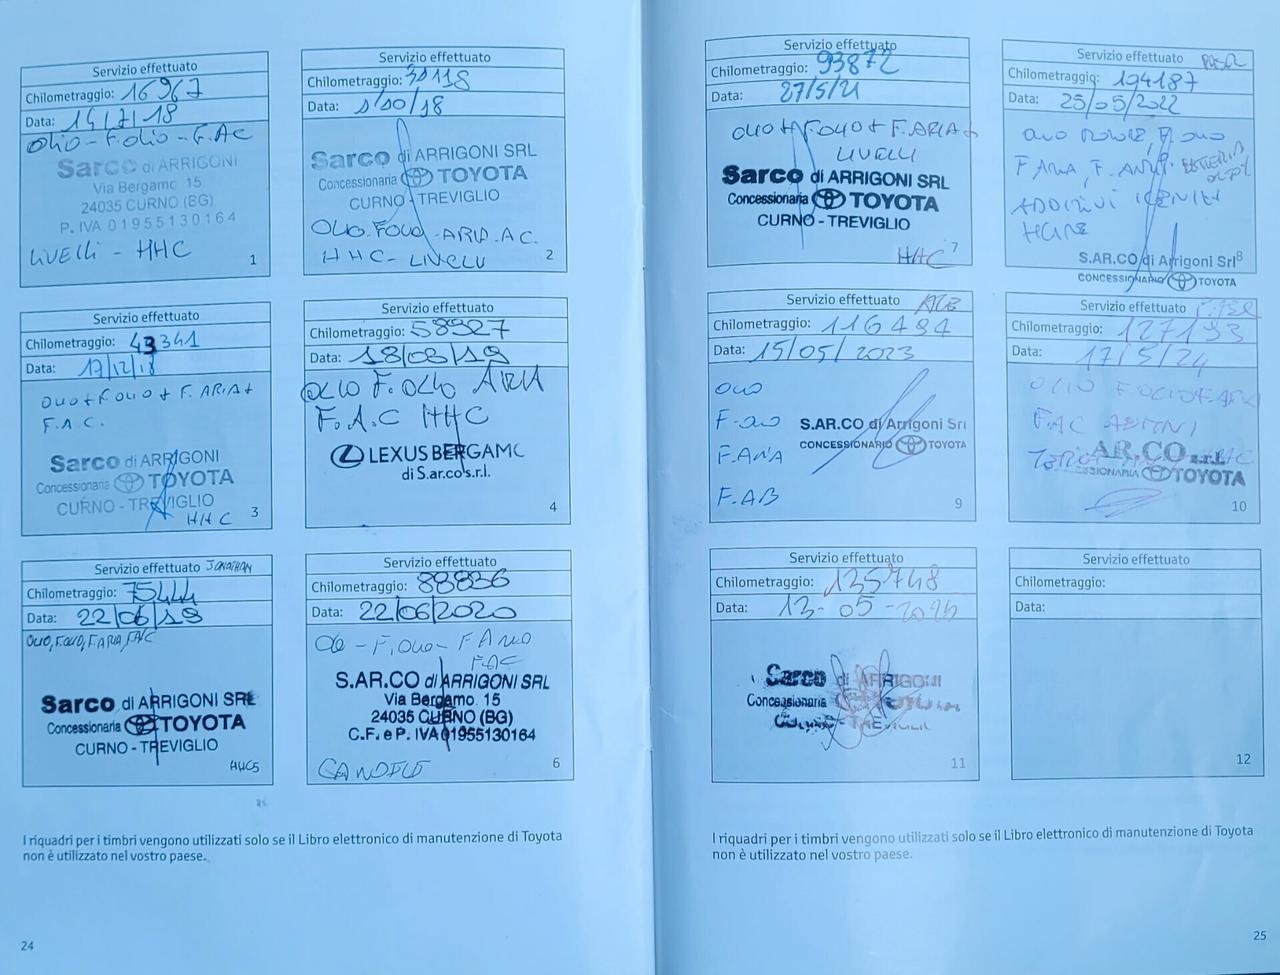 Servizio effettuato
Chilometraggio: 16967
Data: 14/7/18
OLIO - F.OLIO - F.AC
Sarco di ARRIGONI
Via Bergamo 15
24035 CURNO (BG)
P. IVA 01955130164
LIVELLI - HHC
1
Servizio effettuato
Chilometraggio: 30118
Data: 1/10/18
Sarco di ARRIGONI SRL
Concessionaria TOYOTA
CURNO - TREVIGLIO
OLIO. FOLIO - ARIA - AC.
HHC - LIVELLI
2
Servizio effettuato
Chilometraggio: 43341
Data: 17/12/18
OLIO + FOLIO + F. ARIA +
F.A.C.
Sarco di ARRIGONI
Concessionaria TOYOTA
CURNO - TREVIGLIO
HHC
3
Servizio effettuato
Chilometraggio: 58927
Data: 18/03/19
OLIO F. OLIO ARIA
F.A.C HHC
LEXUS BERGAMO
di S.ar.co s.r.l.
4
Servizio effettuato JONATHAN
Chilometraggio: 75444
Data: 22/06/19
OLIO, F.OLIO, F.ARIA, FAC
Sarco di ARRIGONI SRL
Concessionaria TOYOTA
CURNO - TREVIGLIO
HHC 5
Servizio effettuato
Chilometraggio: 88836
Data: 22/06/2020
F.OLIO -
FAC
S.AR.CO di ARRIGONI SRL
Via Bergamo 15
24035 CURNO (BG)
C.F. e P. IVA 01955130164
CANDELE
6
I riquadri per i timbri vengono utilizzati solo se il Libro elettronico di manutenzione di Toyota
non è utilizzato nel vostro paese.
24
Servizio effettuato
Chilometraggio: 93872
Data: 27/5/21
OLIO + F.OLIO + F. ARIA +
LIVELLI
Sarco di ARRIGONI SRL
Concessionaria TOYOTA
CURNO - TREVIGLIO
HHC
7
Servizio effettuato
Chilometraggio: 104187
Data: 25/05/2022
OLIO MOTORE, F. OLIO
F ARIA, F. BATTERIA
ADDITIVI
S.AR.CO di Arrigoni Srl
8
CONCESSIONARIO TOYOTA
Servizio effettuato
Chilometraggio: 116494
Data: 15/05/2023
OLIO
F. OLIO
F. ARIA
F. AB
S.AR.CO di Arrigoni Srl
CONCESSIONARIO TOYOTA
9
Servizio effettuato
Chilometraggio: 127193
Data: 17/5/24
OLIO F OLIO F.ARIA
F.AC
AR.CO s.r.l.
TOYOTA
10
Servizio effettuato
Chilometraggio: 135748
Data: 13-05-2025
Sarco di ARRIGONI
Concessionaria
11
Servizio effettuato
Chilometraggio:
Data:
12
I riquadri per i timbri vengono utilizzati solo se il Libro elettronico di manutenzione di Toyota
non è utilizzato nel vostro paese.
25